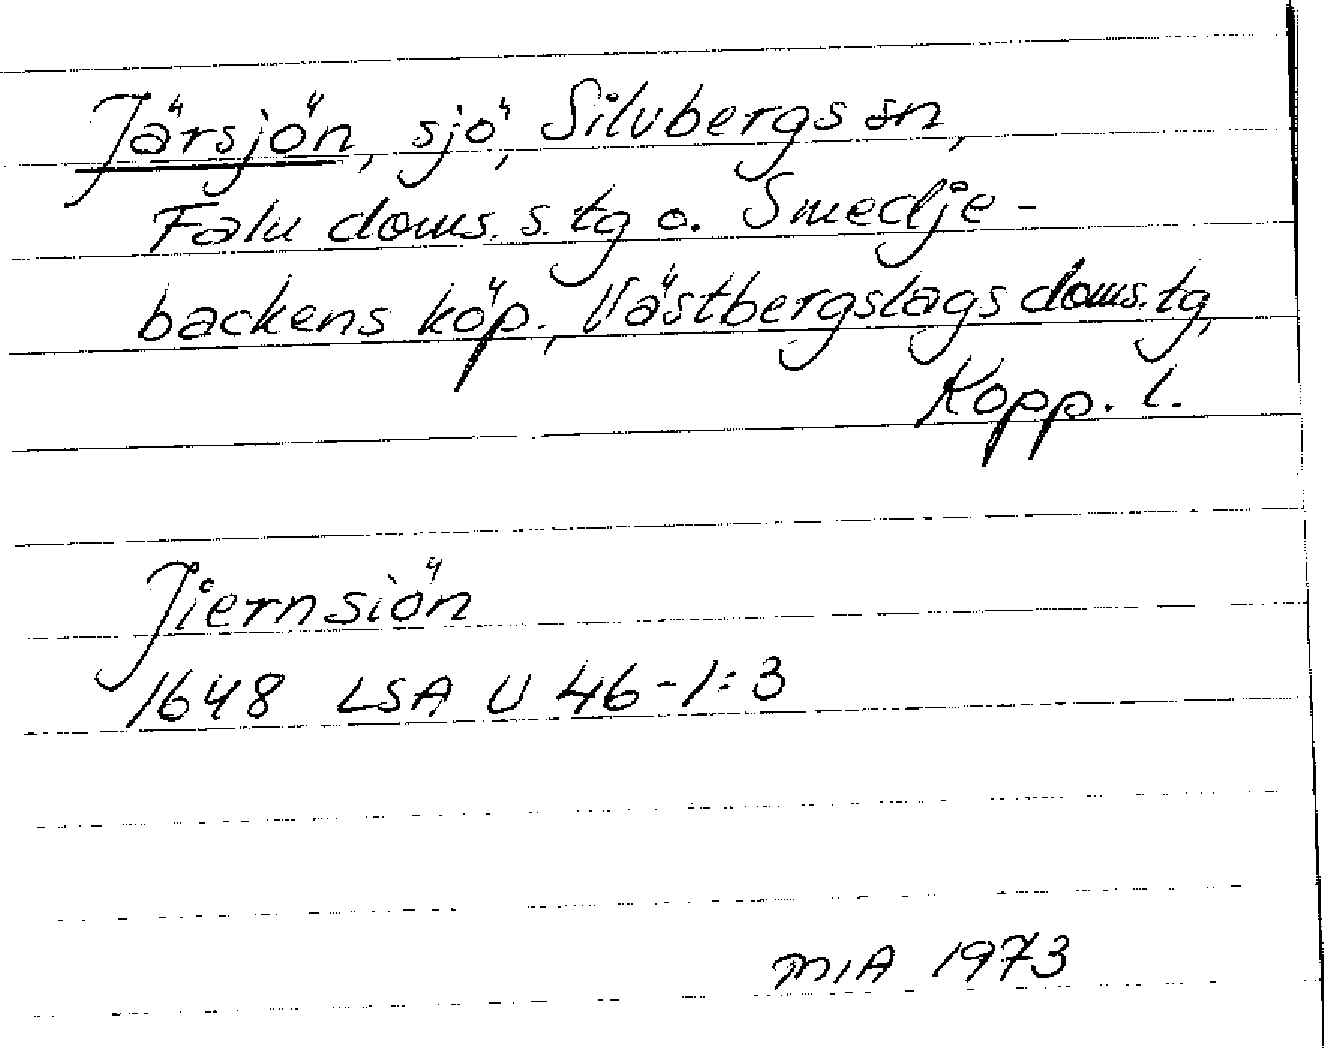 Järsjön, sjö, Silvbergs sn,
Falu doms. s. tg o. Smedje-
backens köp., Västbergslags doms. tg,
Kopp. l.
Jiernsiön
1648 LSA U 46-1:3
MIA 1973